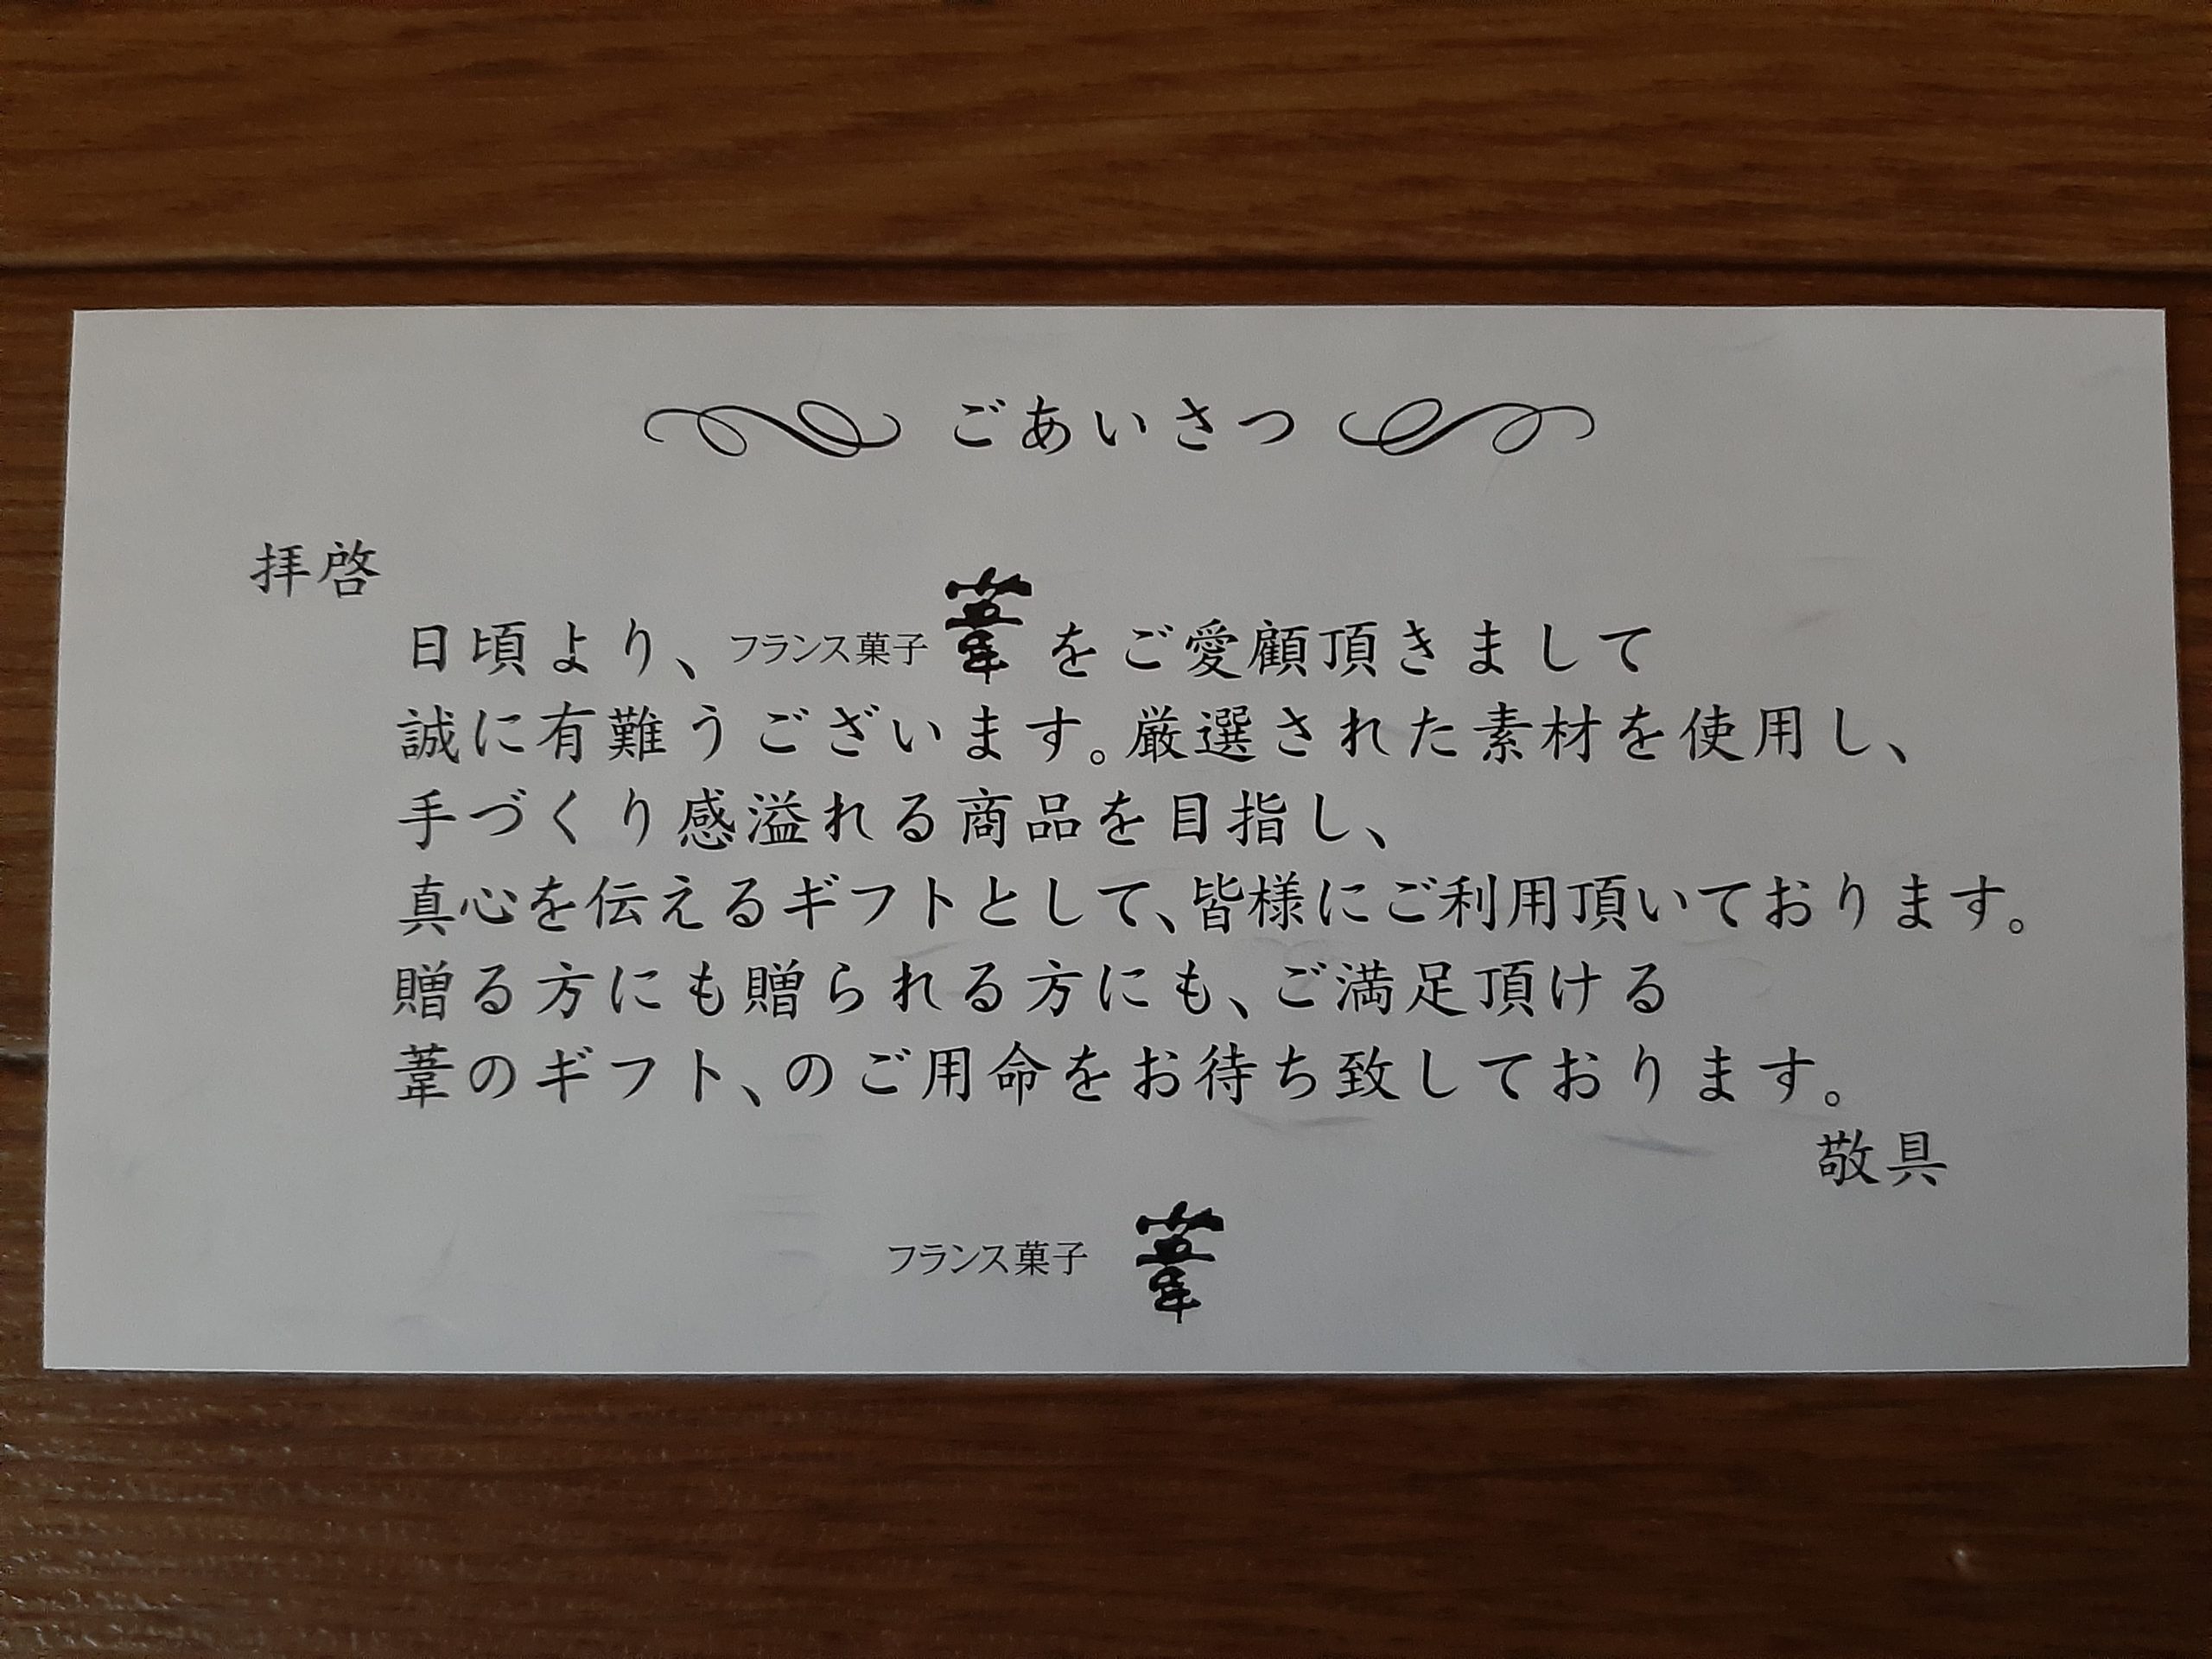 ごあいさつ
拝啓
日頃より、フランス菓子 葦 をご愛顧頂きまして
誠に有難うございます。厳選された素材を使用し、
手づくり感溢れる商品を目指し、
真心を伝えるギフトとして、皆様にご利用頂いております。
贈る方にも贈られる方にも、ご満足頂ける
葦のギフト、のご用命をお待ち致しております。
敬具
フランス菓子 葦